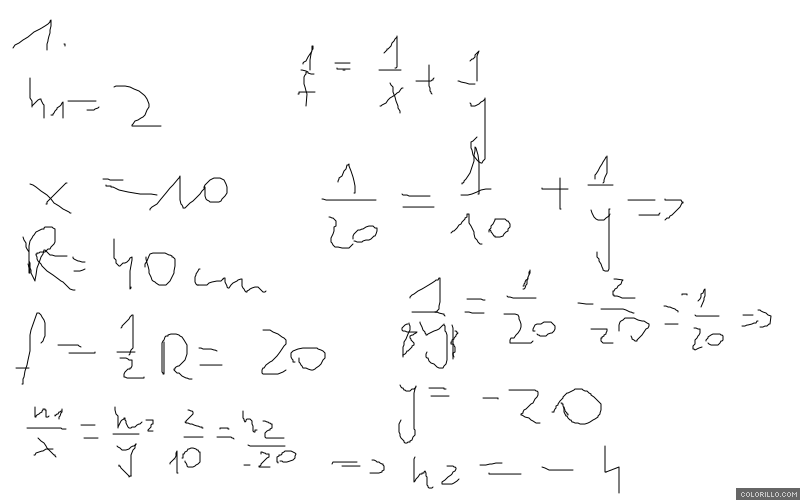 1.
h1 = 2
x = 10
R = 40 cm
f = 1/2 R = 20
h1/x = h2/y 2/10 = h2/-20 => h2 = -4
1/f = 1/x + 1/y
1/20 = 1/10 + 1/y =>
1/y = 1/20 - 2/20 = -1/20 =>
y = -20
COLORILLO.COM